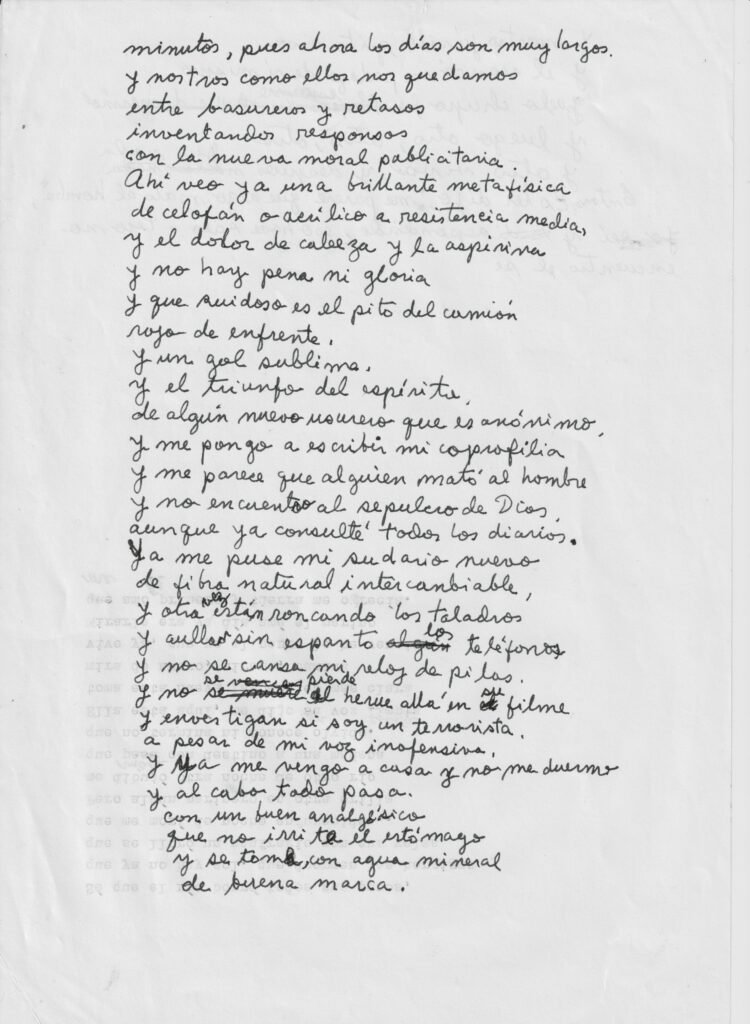 minutos, pues ahora los días son muy largos.
y nostros como ellos nos quedamos
entre basureros y retasos
inventandos responsos
con la nueva moral publicitaria.
Ahí veo ya una brillante metafísica
de celofán o acrílico a resistencia media,
y el dolor de cabeza y la aspirina
y no hay pena ni gloria
y que ruidoso es el pito del camión
rojo de enfrente.
y un gol sublima.
y el triunfo del espíritu,
de algún nuevo usurero que es anónimo,
y me pongo a escribir mi coprofilia
y me parece que alguien mató al hombre
y no encuentro al sepulcro de Dios,
aunque ya consulté todos los diarios.
Ya me puse mi sudario nuevo
de fibra natural intercambiable,
y otra vez están roncando los taladros
y aullar sin espanto algún los teléfonos
y no se cansa mi reloj de pilas.
y no se pierde el heroe allá en su filme
y investigan si soy un terrorista.
a pesar de mi voz inofensiva.
y ya me vengo a casa y no me duermo
y al cabo todo pasa.
con un buen analgésico
que no irrita el estómago
y se toma, con agua mineral
de buena marca.